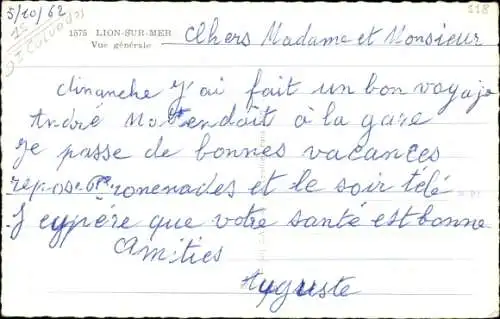 5/10/62
15
CALVADOS
1575 LION-SUR-MER
Vue générale
318
Chers Madame et Monsieur
dimanche J'ai fait un bon voyaje
André M'attendait à la gare
Je passe de bonnes vacances
repos Promenades et le soir télé
J'eypére que votre santé est bonne
Amities
Auguste